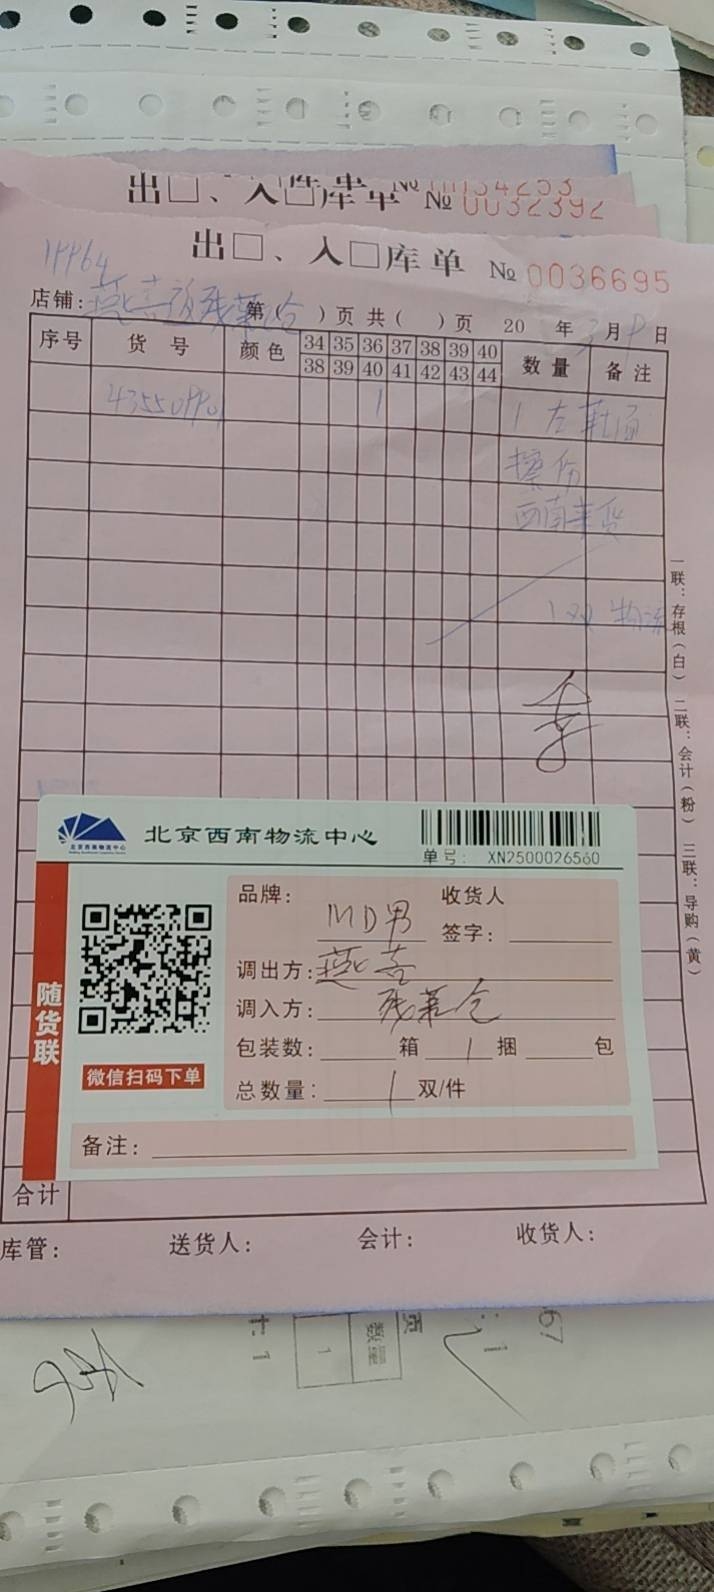 № 0034253
出□、入□库单 № 0032392
出□、入□库单 № 0036695
19964
店铺: 燕莎返残第仓 第( )页 共( )页 20 年 3月9日
序号 货号 颜色 34 35 36 37 38 39 40 数量 备注
38 39 40 41 42 43 44
1 1 左鞋面
擦伤
西南来货
1双 物流
李
一联:存根(白) 二联:会计(粉) 三联:导购(黄)
北京西南物流中心
北京西南物流中心
单号: XN2500026560
随货联
微信扫码下单
品牌: MD男 收货人
签字:
调出方: 燕莎
调入方: 残第仓
包装数: 箱 1 捆 包
总数量: 1 双/件
备注:
合计
库管: 送货人: 会计: 收货人:
67
页
数量
1
: 1